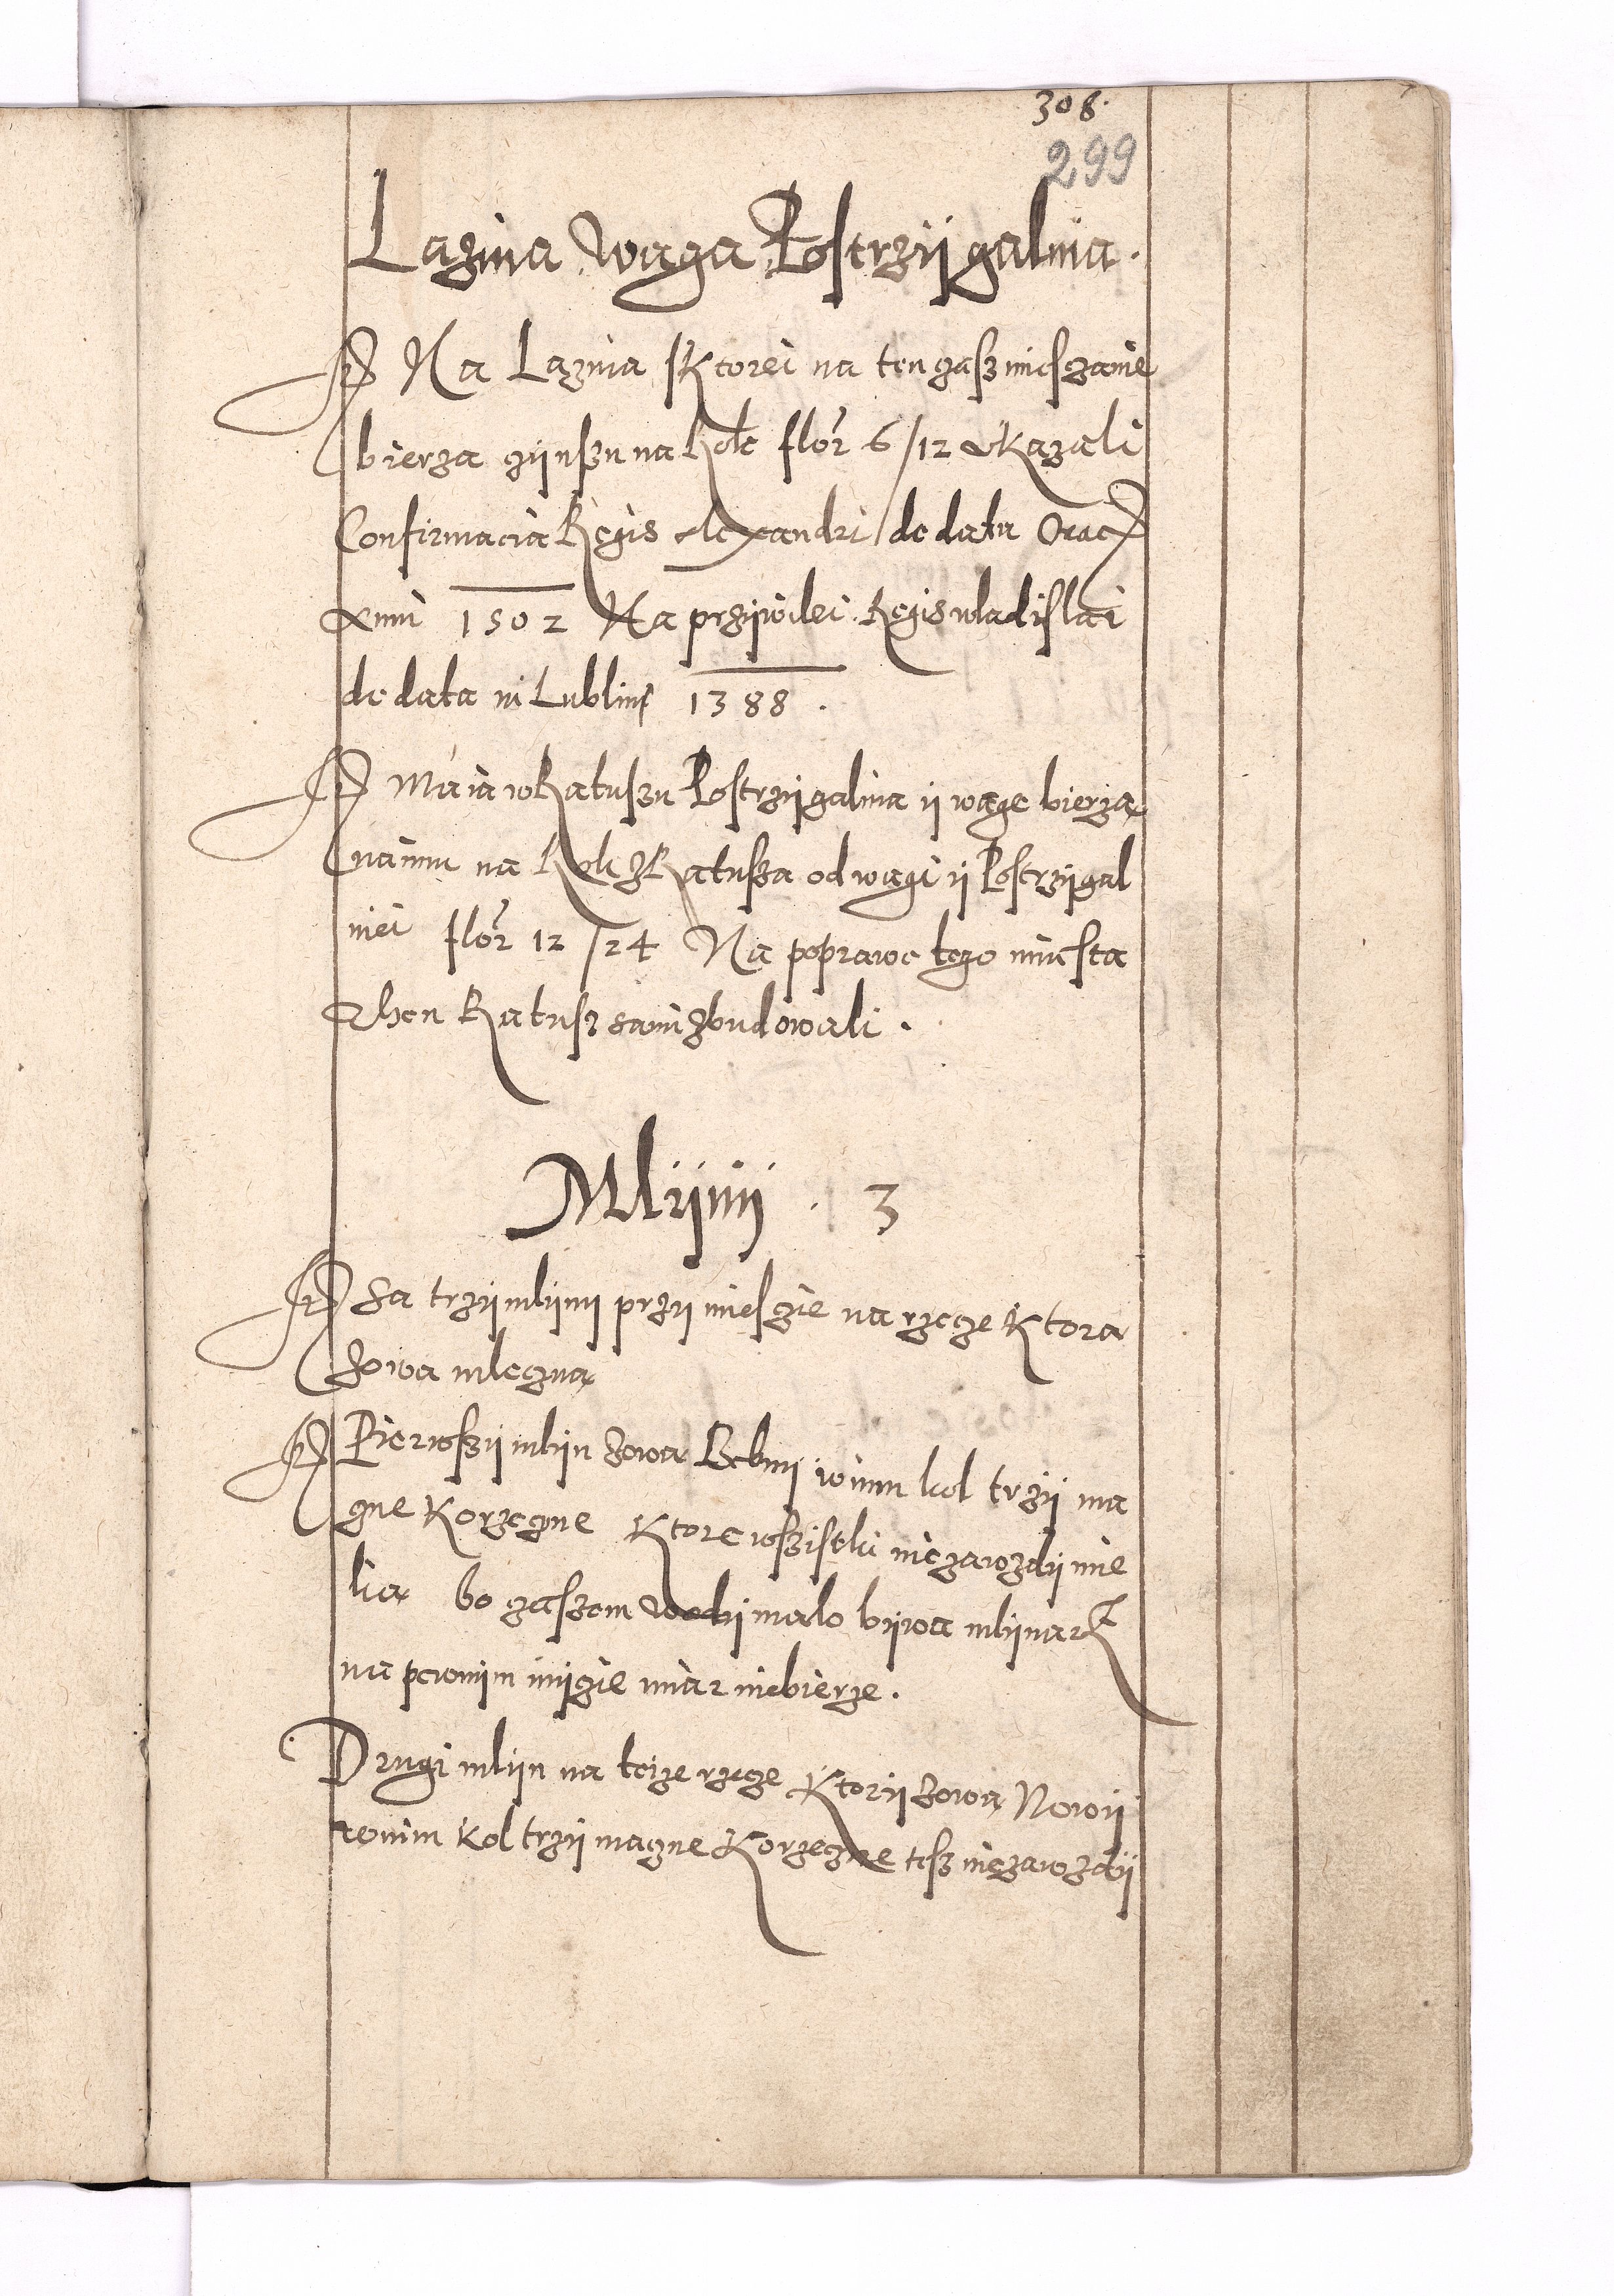 308.
299
Laznia Waga Postrzÿgalnia.
Na Laznia sktorei na ten czasz miesczanie
bierza czÿnszu na Rok flor 6/12 vkazali
Confirmacia Regis Alexandri de data Crac
Anni 1502 Na przÿwilei Regis wladislai
de data in Lublin 1388.
Maia w Ratuszu Postrzÿgalnia ÿ wage bierza
naimu na Rok z Ratusza od wagi ÿ Postrzÿgal
niei flor 12/24 Na poprawe tego miasta
Then Ratusz sami zbudowali.
Mlÿnÿ. 3
Sa trzÿ mlÿnÿ przÿ miesczie na rzecze Ktora
zowa mleczna
Pierwszÿ mlÿn zowa winim kol trzÿ ma
czne Korzeczne Ktore wszistki nie zawzdÿ mie
lia bo czaszem wodÿ malo bÿwa mlÿnarz
na pewnim mÿczie miar niebierze.
Drugi mlÿn na teize rzecze Ktorÿ zowa Nowÿ
wnim kol trzÿ maczne Korzeczne tesz niezawzdÿ